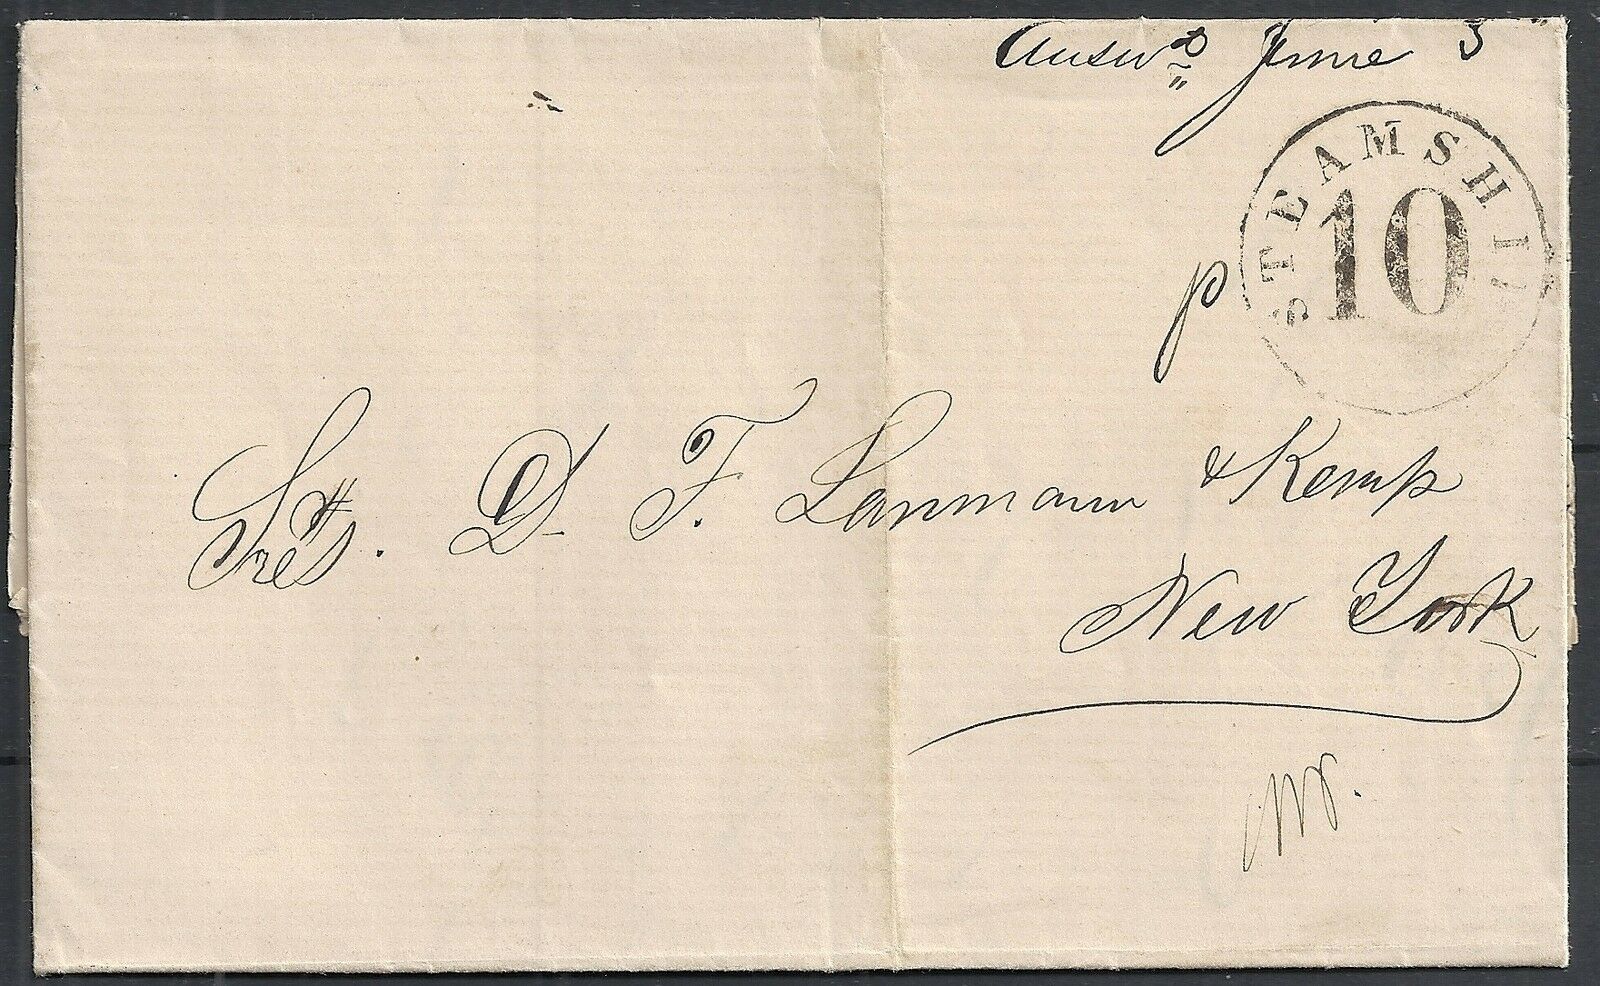 Answd June 5
STEAMSHIP
10
p
Sres. D. F. Lanmann & Kemp
New York